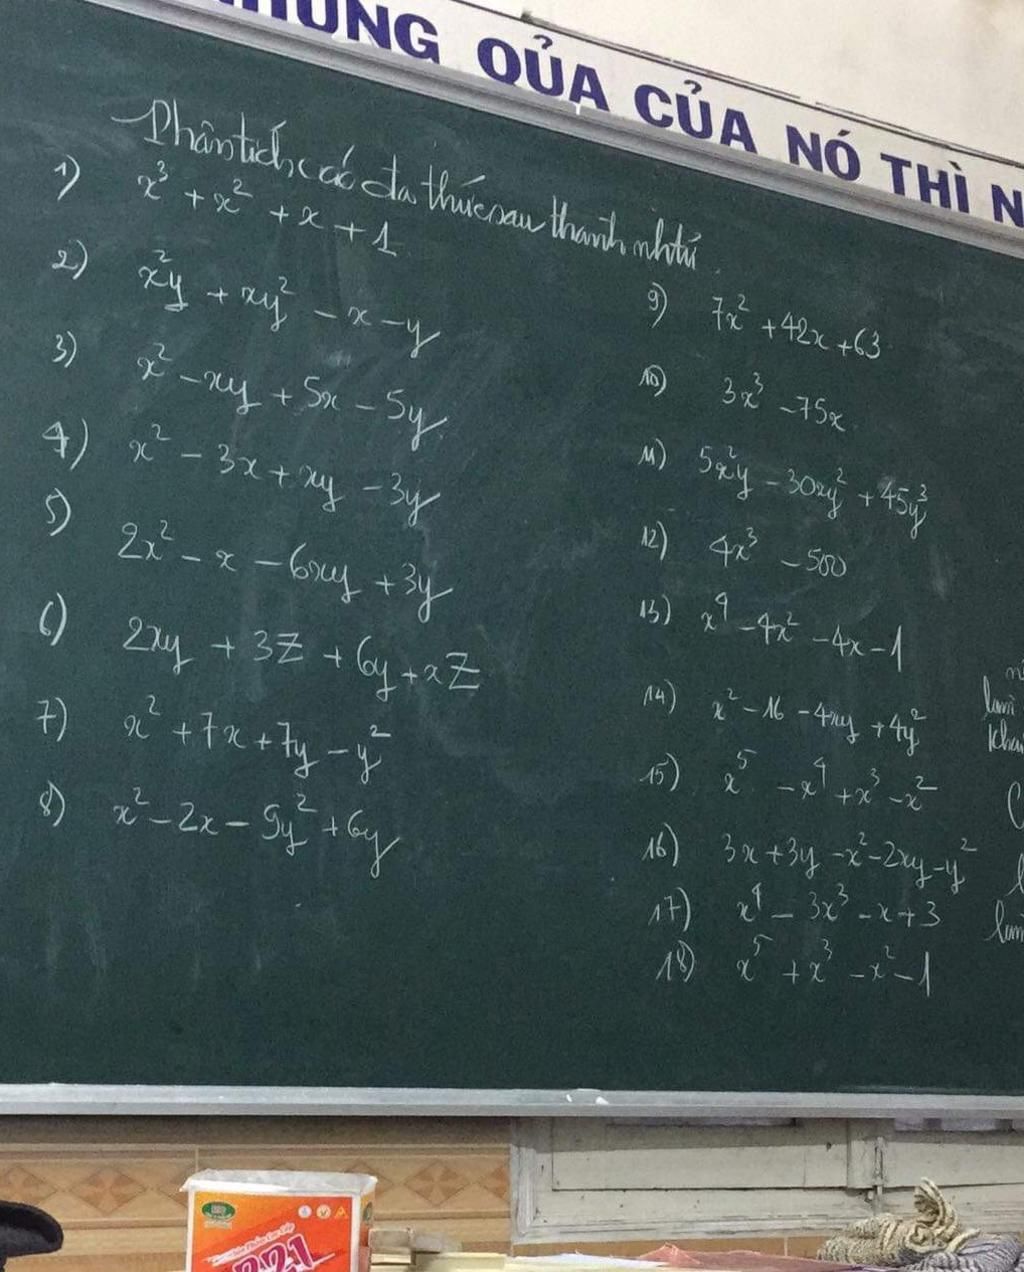 QỦA CỦA NÓ THÌ N
Phân tích các đa thức sau thành nhtử
1) x³ + x² + x + 1
2) x²y + xy² - x - y
3) x² - xy + 5x - 5y
4) x² - 3x + xy - 3y
5) 2x² - x - 6xy + 3y
6) 2xy + 3Z + 6y + xZ
7) x² + 7x + 7y - y²
8) x² - 2x - 9y² + 6y
9) 7x² + 42x + 63
10) 3x³ - 75x
11) 5x²y - 30xy² + 45y³
12) 4x³ - 500
13) x⁴ - 4x² - 4x - 1
14) x² - 16 - 4xy + 4y²
15) x⁵ - x⁴ + x³ - x²
16) 3x + 3y - x² - 2xy - y²
17) x⁴ - 3x³ - x + 3
18) x⁵ + x³ - x² - 1
B21